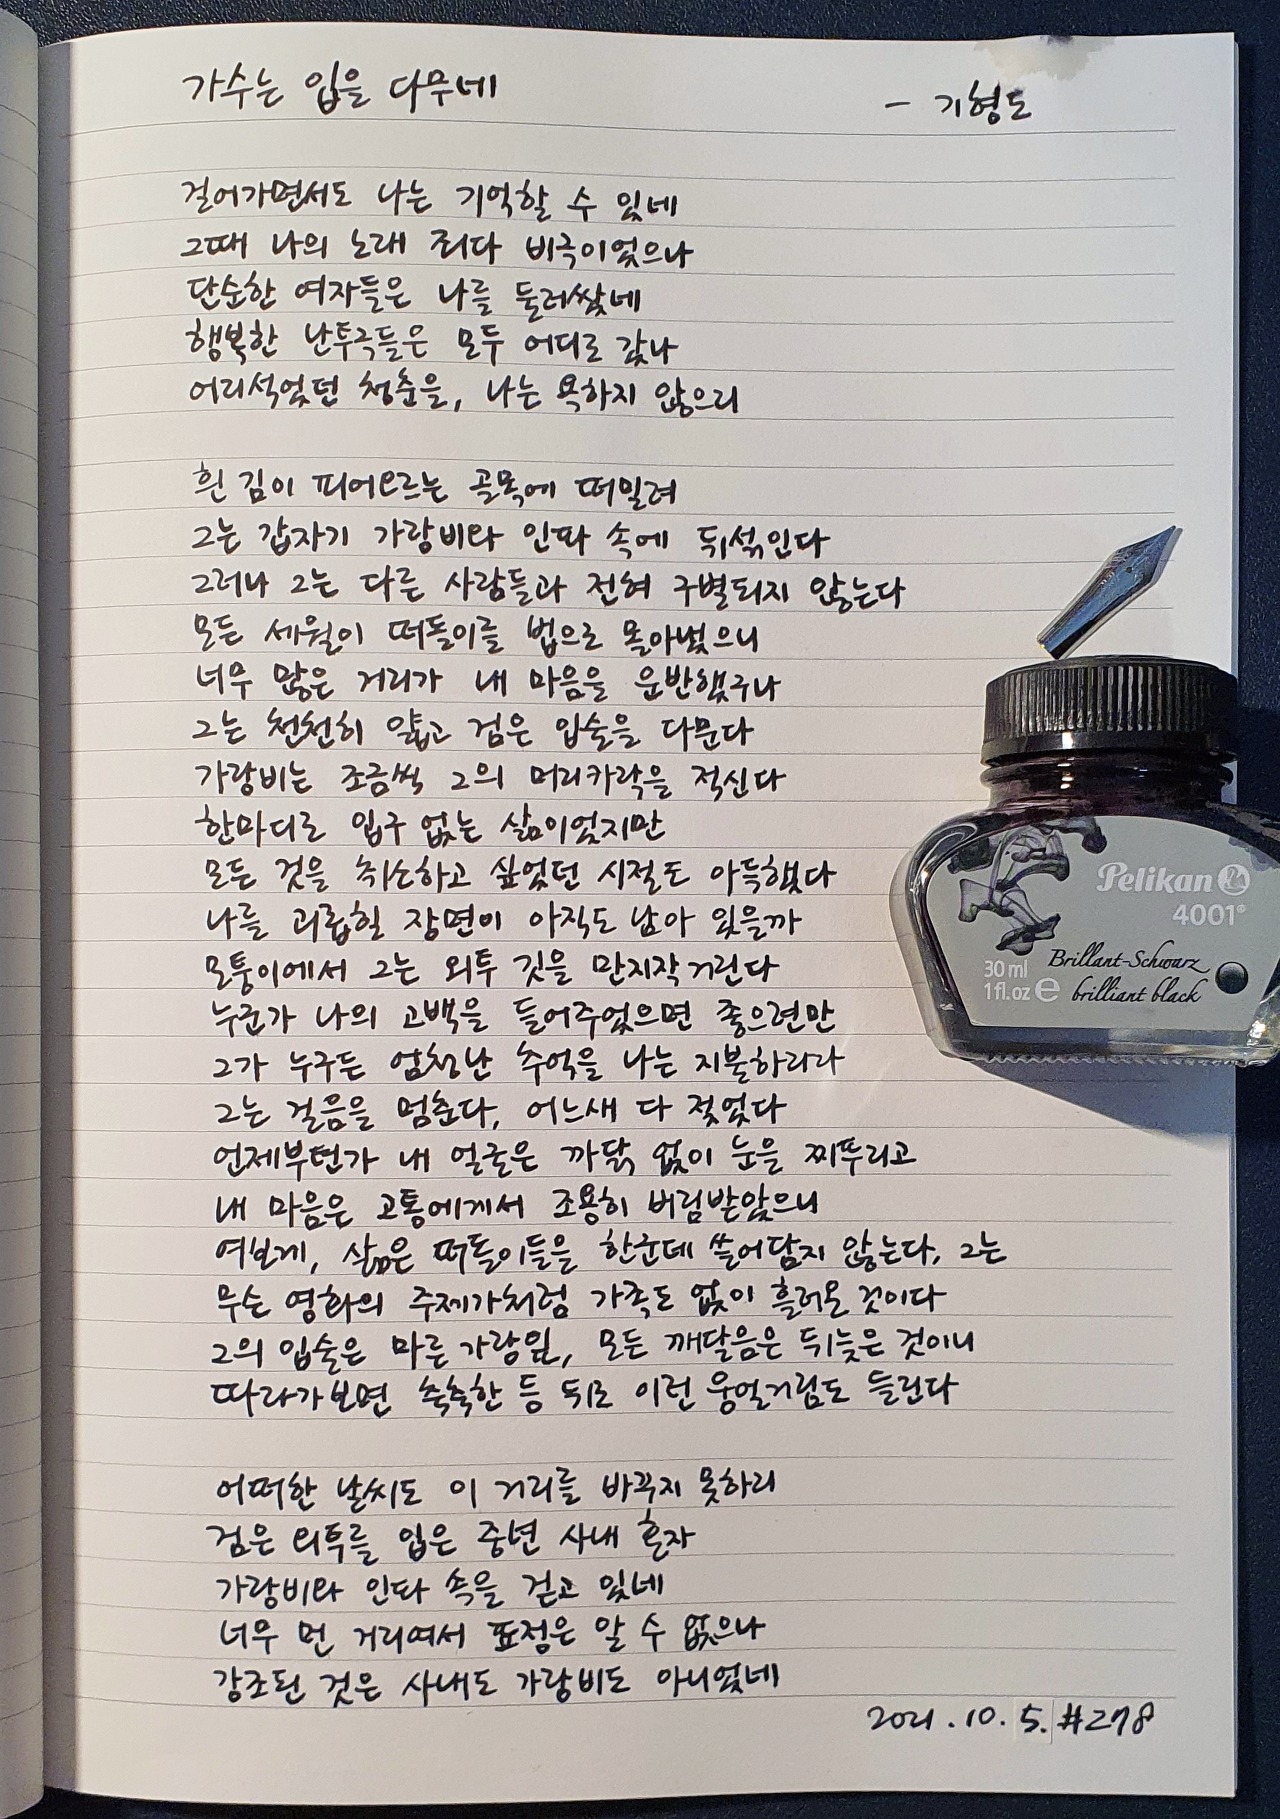 가수는 입을 다무네
- 기형도
걸어가면서도 나는 기억할 수 있네
그때 나의 노래 죄다 비극이었으나
단순한 여자들은 나를 둘러쌌네
행복한 난투극들은 모두 어디로 갔나
어리석었던 청춘을, 나는 욕하지 않으리
흰 김이 피어오르는 골목에 떠밀려
그는 갑자기 가랑비와 인파 속에 뒤섞인다
그러나 그는 다른 사람들과 전혀 구별되지 않는다
모든 세월이 떠돌이를 법으로 몰아냈으니
너무 많은 거리가 내 마음을 운반했구나
그는 천천히 얇고 검은 입술을 다문다
가랑비는 조금씩 그의 머리카락을 적신다
한마디로 입구 없는 삶이었지만
모든 것을 취소하고 싶었던 시절도 아득했다
나를 괴롭힐 장면이 아직도 남아 있을까
모퉁이에서 그는 외투 깃을 만지작거린다
누군가 나의 고백을 들어주었으면 좋으련만
그가 누구든 엄청난 추억을 나는 지불하리라
그는 걸음을 멈춘다, 어느새 다 젖었다
언제부턴가 내 얼굴은 까닭 없이 눈을 찌푸리고
내 마음은 고통에게서 조용히 버림받았으니
여보게, 삶은 떠돌이들을 한군데 쓸어담지 않는다, 그는
무슨 영화의 주제가처럼 가족도 없이 흘러온 것이다
그의 입술은 마른 가랑잎, 모든 깨달음은 뒤늦은 것이니
따라가보면 축축한 등 뒤로 이런 웅얼거림도 들린다
어떠한 날씨도 이 거리를 바꾸지 못하리
검은 외투를 입은 중년 사내 혼자
가랑비와 인파 속을 걷고 있네
너무 먼 거리여서 표정은 알 수 없으나
강조된 것은 사내도 가랑비도 아니었네
2021.10.5. #278
Pelikan
4001®
30 ml
1 fl.oz e
Brillant-Schwarz
brilliant black